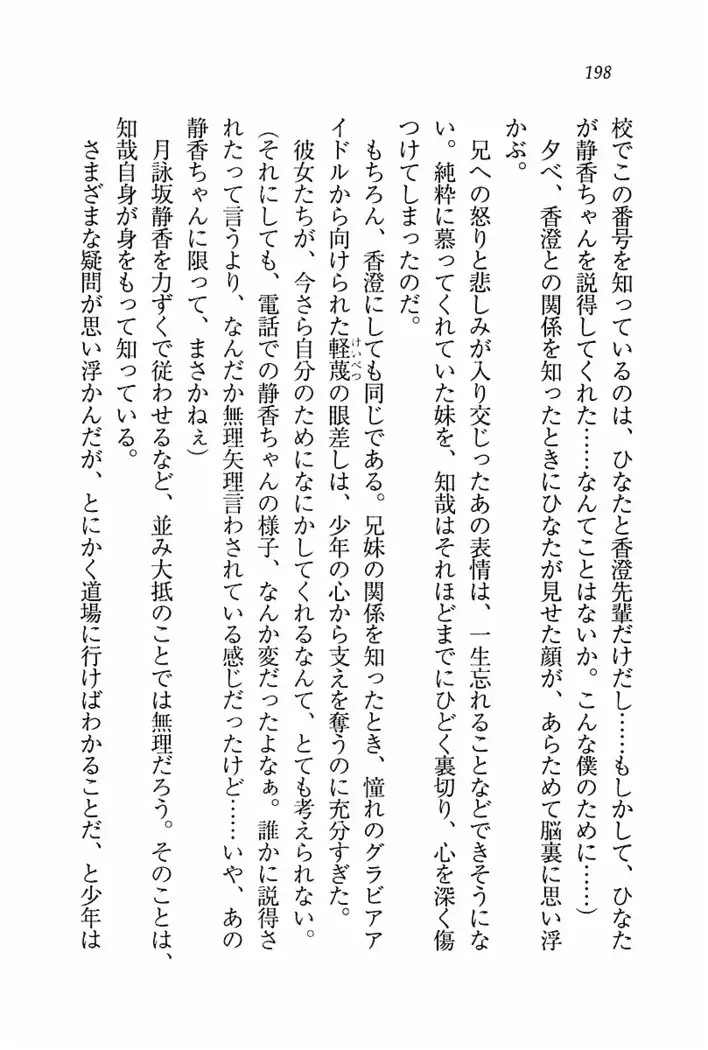 198
校でこの番号を知っているのは、ひなたと香澄先輩だけだし……もしかして、ひなた
が静香ちゃんを説得してくれた……なんてことはないか。こんな僕のために……）
夕べ、香澄との関係を知ったときにひなたが見せた顔が、あらためて脳裏に思い浮
かぶ。
兄への怒りと悲しみが入り交じったあの表情は、一生忘れることなどできそうにな
い。純粋に慕ってくれていた妹を、知哉はそれほどまでにひどく裏切り、心を深く傷
つけてしまったのだ。
もちろん、香澄にしても同じである。兄妹の関係を知ったとき、憧れのグラビアア
イドルから向けられた軽蔑の眼差しは、少年の心から支えを奪うのに充分すぎた。
けいべつ
彼女たちが、今さら自分のためになにかしてくれるなんて、とても考えられない。
（それにしても、電話での静香ちゃんの様子、なんか変だったよなぁ。誰かに説得さ
れたって言うより、なんだか無理矢理言わされている感じだったけど……いや、あの
静香ちゃんに限って、まさかねぇ）
月詠坂静香を力ずくで従わせるなど、並み大抵のことでは無理だろう。そのことは、
知哉自身が身をもって知っている。
さまざまな疑問が思い浮かんだが、とにかく道場に行けばわかることだ、と少年は